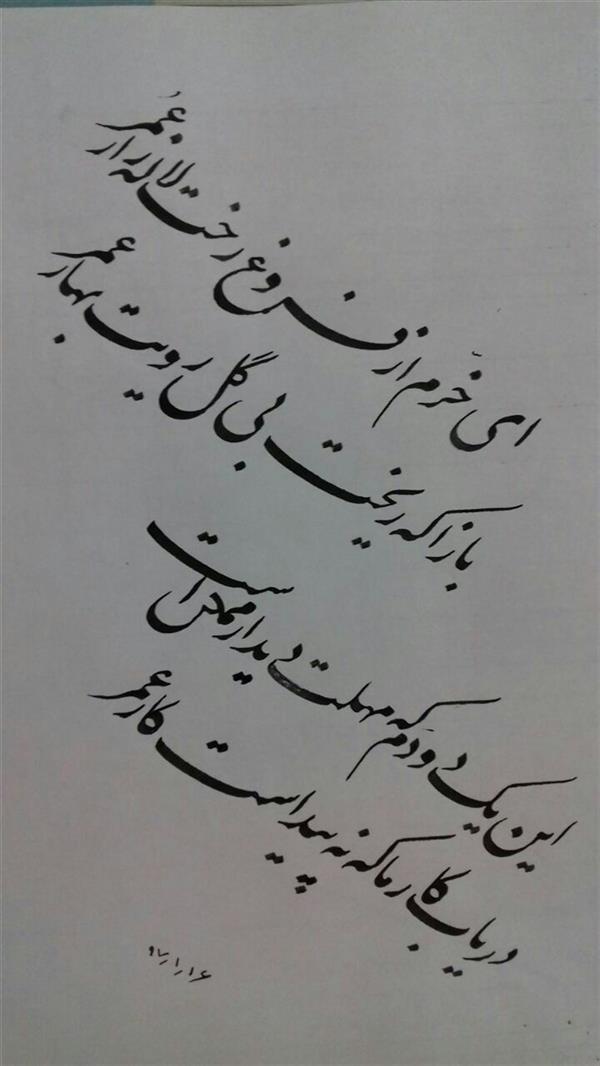 ای خُرم از فروغ رخت لاله زار عُمر
باز آ که ریخت بی گل رویت بهار عمر
این یک دو دم که مهلت دیدار ممکن است
دریاب کار ما که نه پیداست کار عمر